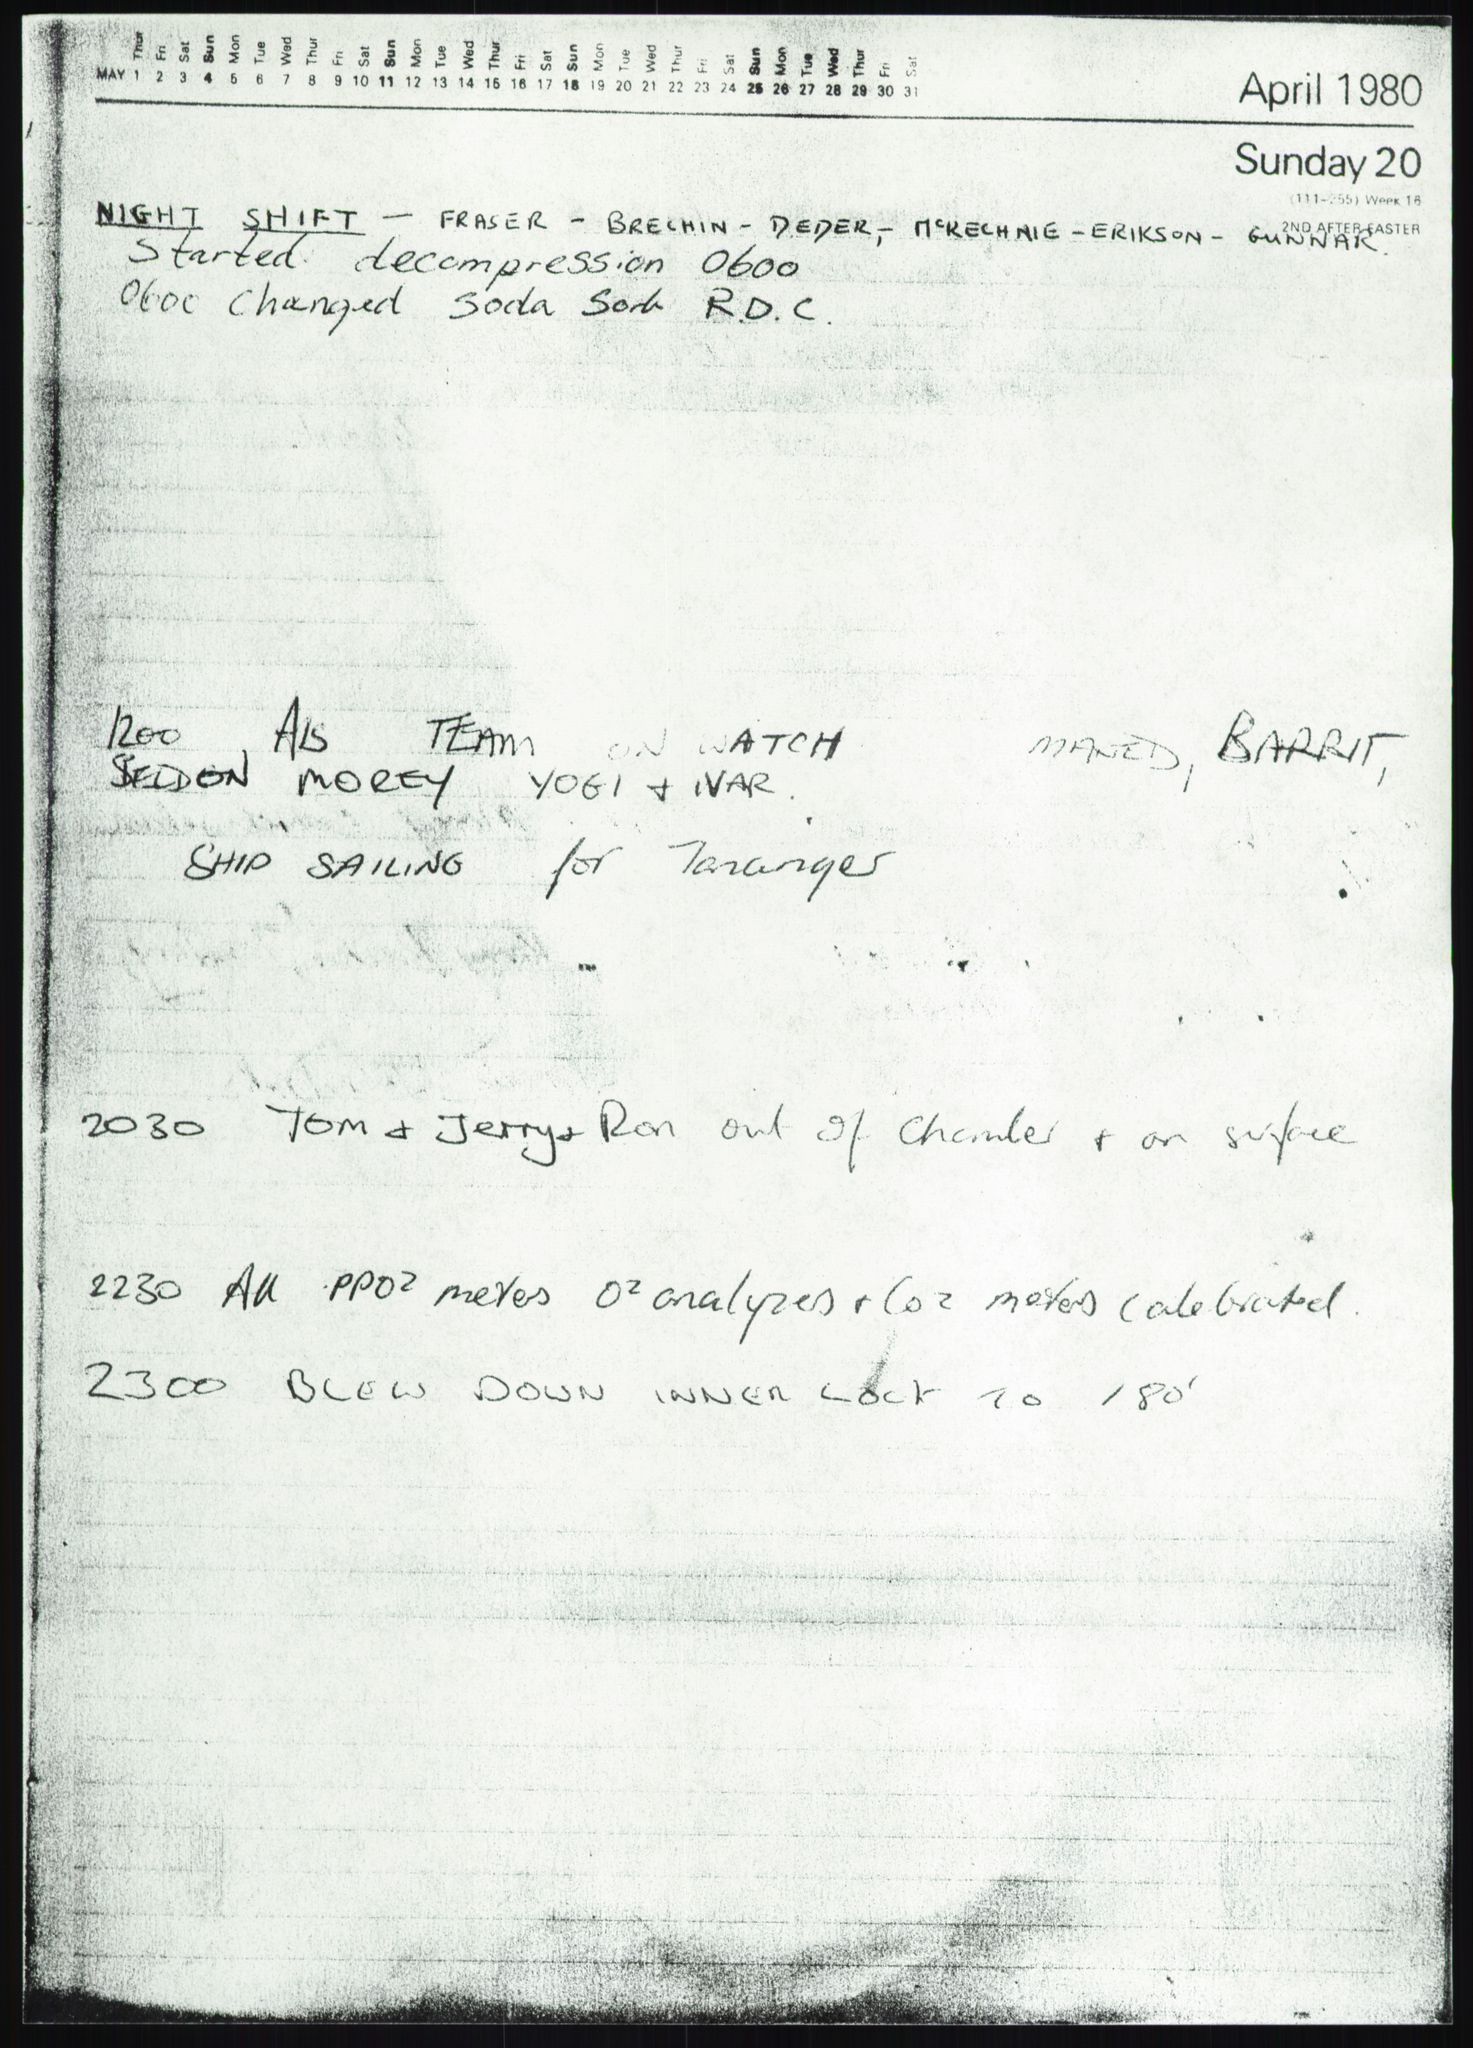 Thur Fri Sat Sun Mon Tue Wed Thur Fri Sat Sun Mon Tue Wed Thur Fri Sat Sun Mon Tue Wed Thur Fri Sat Sun Mon Tue Wed Thur Fri Sat
MAY 1 2 3 4 5 6 7 8 9 10 11 12 13 14 15 16 17 18 19 20 21 22 23 24 25 26 27 28 29 30 31
April 1980
Sunday 20
(111-255) Week 16
2ND AFTER EASTER
NIGHT SHIFT - FRASER - BRECHIN - DEDER, - McKECHNIE - ERIKSON - GUNNAR
Started decompression 0600
0600 Changed Soda Sorb R.D.C.
1200 Als TEAM ON WATCH MANED, BARRIT,
SELDON MOREY YOGI + IVAR.
SHIP SAILING for Tananger
2030 Tom + Jerry + Ron out of Chamber + on surface
2230 All PPO2 meters O2 analyzers + Co2 meters calebrated.
2300 BLEW DOWN INNER LOCK TO 180'